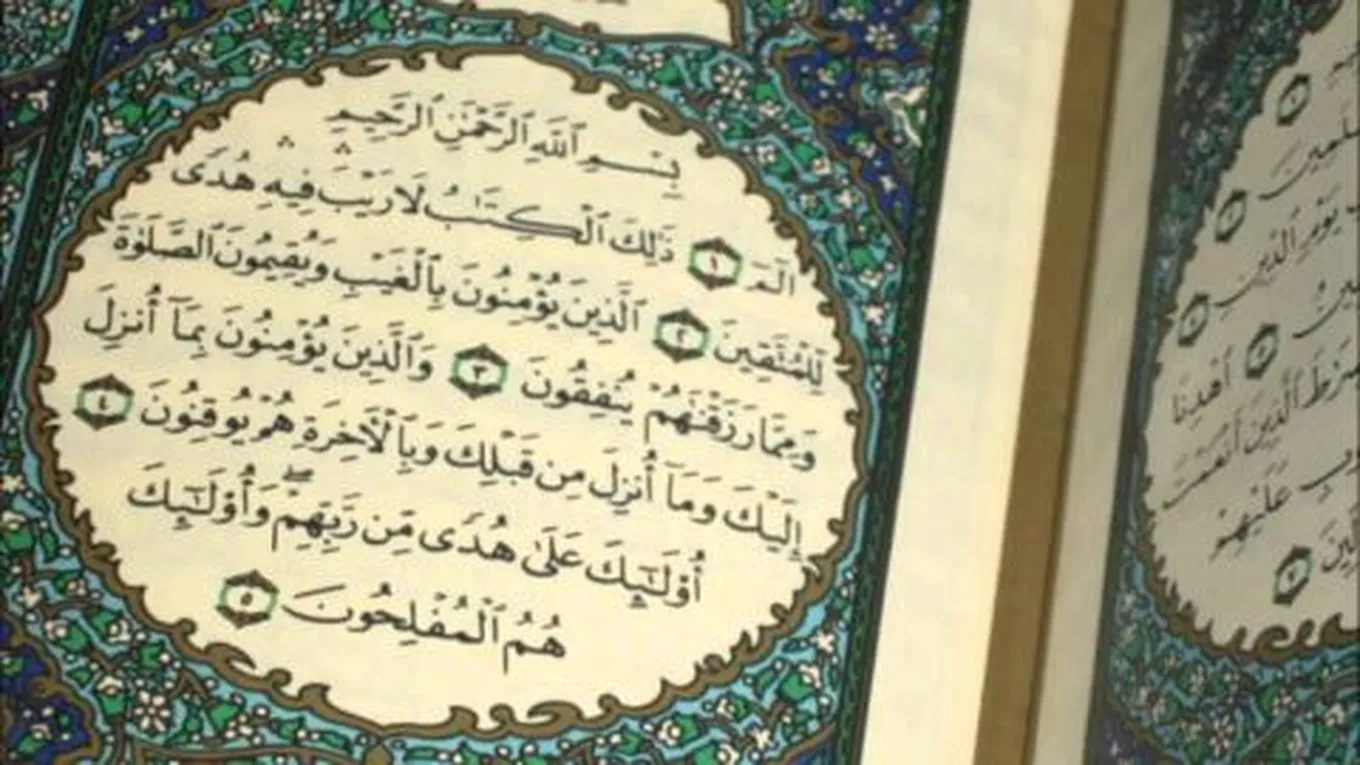 بِسْمِ ٱللَّهِ ٱلرَّحْمَٰنِ ٱلرَّحِيمِ
الٓمٓ ١ ذَٰلِكَ ٱلْكِتَٰبُ لَا رَيْبَ ۛ فِيهِ ۛ هُدًى
لِّلْمُتَّقِينَ ٢ ٱلَّذِينَ يُؤْمِنُونَ بِٱلْغَيْبِ وَيُقِيمُونَ ٱلصَّلَوٰةَ
وَمِمَّا رَزَقْنَٰهُمْ يُنفِقُونَ ٣ وَٱلَّذِينَ يُؤْمِنُونَ بِمَآ أُنزِلَ
إِلَيْكَ وَمَآ أُنزِلَ مِن قَبْلِكَ وَبِٱلْءَاخِرَةِ هُمْ يُوقِنُونَ ٤
أُو۟لَٰٓئِكَ عَلَىٰ هُدًى مِّن رَّبِّهِمْ ۖ وَأُو۟لَٰٓئِكَ
هُمُ ٱلْمُفْلِحُونَ ٥
يَوْمِ ٱلدِّينِ
ٱهْدِنَا
ٱلَّذِينَ أَنْعَمْتَ
عَلَيْهِمْ
٧